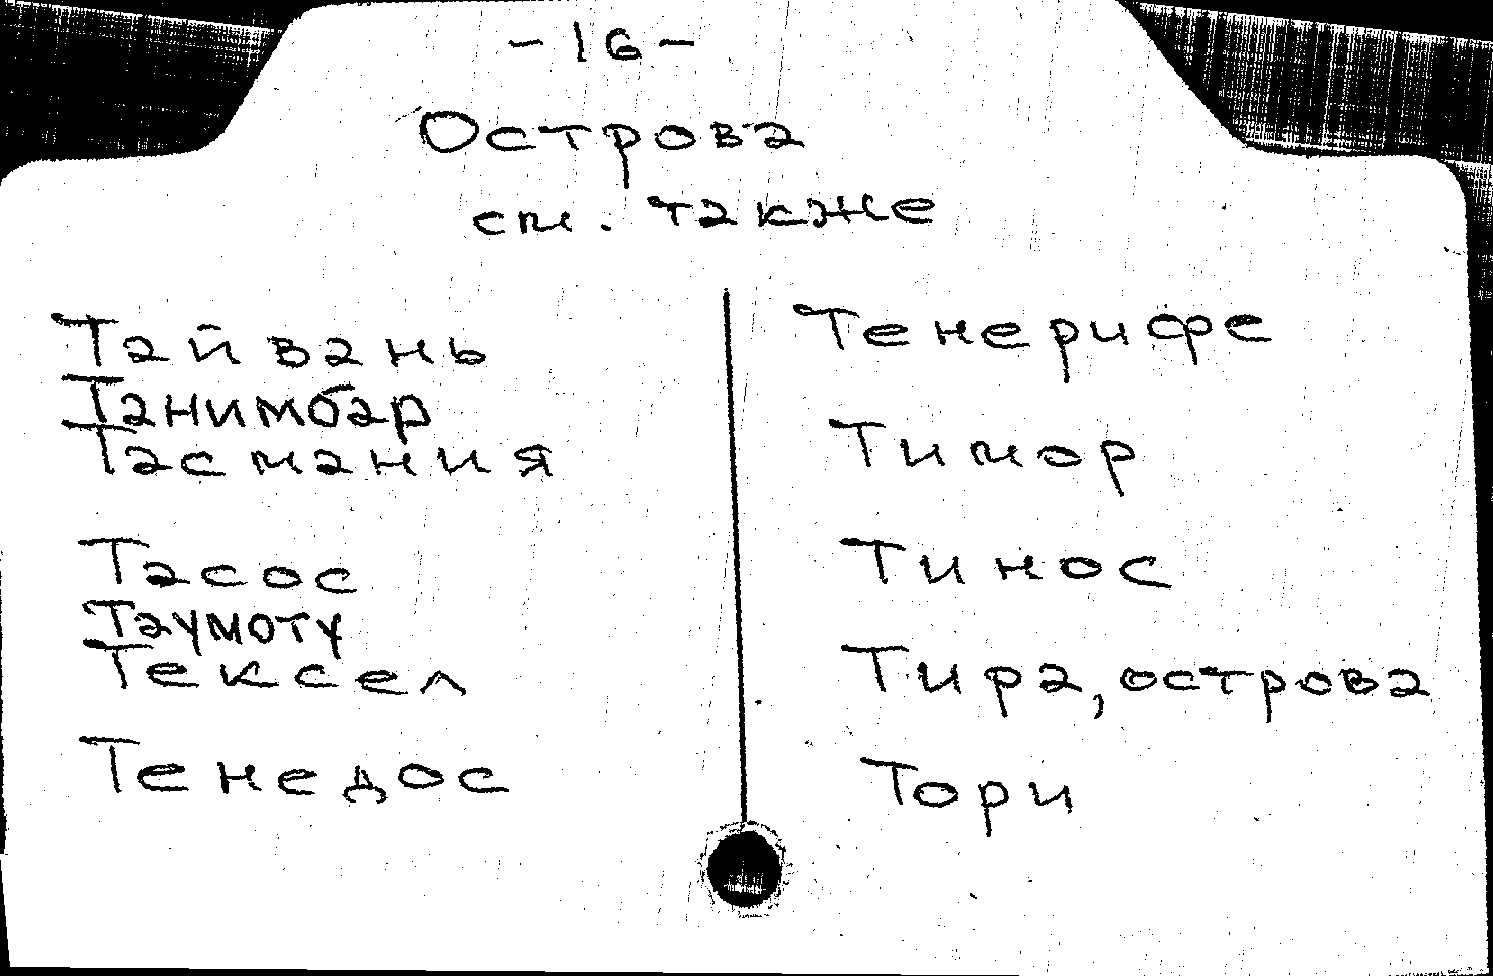 - 16 -
Острова
см. также
Тайвань
Танимбар
Тасмания
Тасос
Таумоту
Тексел
Тенедос
Тенерифе
Тимор
Тинос
Тира, острова
Тори